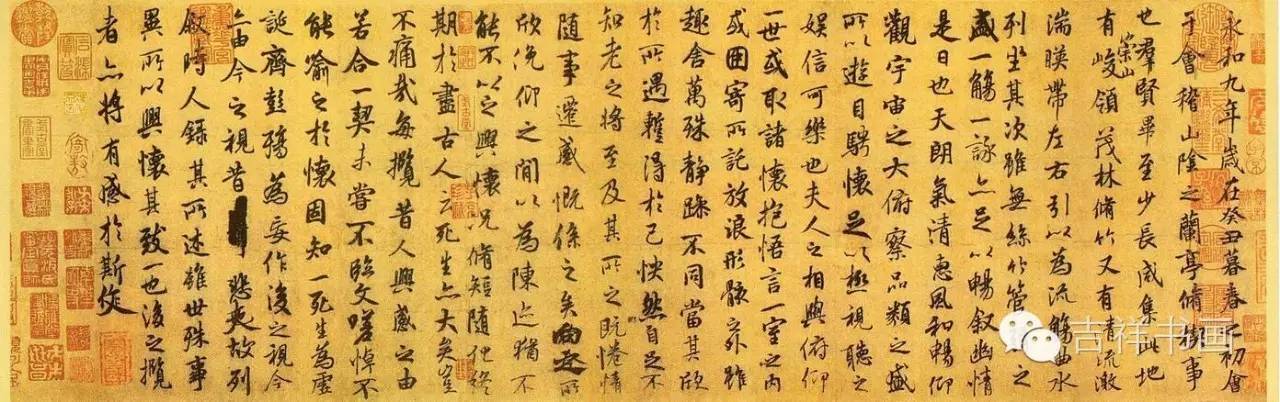 永和九年歲在癸丑暮春之初會
于會稽山陰之蘭亭脩稧事
也群賢畢至少長咸集此地
有崇山峻領茂林脩竹又有清流激
湍暎帶左右引以為流觴曲水
列坐其次雖無絲竹管之
盛一觴一詠亦足以暢敘幽情
是日也天朗氣清惠風和暢仰
觀宇宙之大俯察品類之盛
所以遊目騁懷足以極視聽之
娛信可樂也夫人之相與俯仰
一世或取諸懷抱悟言一室之內
或因寄所託放浪形骸之外雖
趣舍萬殊靜躁不同當其欣
於所遇蹔得於己怏然自足不
知老之將至及其所之既惓情
隨事遷感慨係之矣向之所
欣俛仰之間以為陳迹猶不
能不以之興懷況脩短隨化終
期於盡古人云死生亦大矣豈
不痛哉每攬昔人興感之由
若合一契未嘗不臨文嗟悼不
能喻之於懷固知一死生為虛
誕齊彭殤為妄作後之視今
亦由今之視昔悲夫故列
敘時人錄其所述雖世殊事
異所以興懷其致一也後之攬
者亦將有感於斯文
吉祥书画